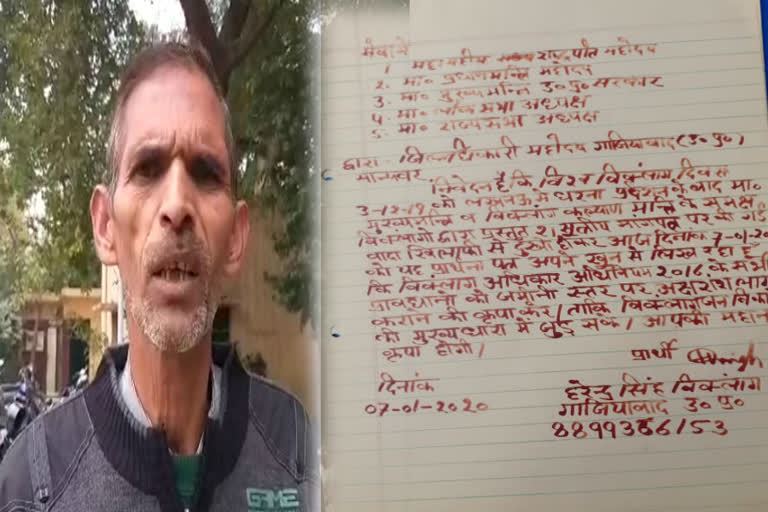 GAME
सेवा में
1. महामहीम राष्ट्रपति महोदय
2. मा० प्रधानमन्त्रि महोदय
3. मा० मुख्यमन्त्रि उ०प्र० सरकार
4. मा० लोक सभा अध्यक्ष
5. मा० राज्यसभा अध्यक्ष
द्वारा - जिलाधिकारी महोदय गाजियाबाद (उ०प्र०)
मान्यवर,
निवेदन है कि विश्व विक्लांग दिवस
3-12-19 को लखनऊ में धरना प्रदर्शन के बाद मा०
मुख्यमन्त्रि व विक्लांग कल्याण मन्त्रि के समक्ष
विक्लांगो द्वारा प्रस्तुत 21 सूत्रीय मांगपत्र पर की गई
वादा खिलाफी से दुखी होकर आज दिनांक 7-01-20
को यह प्रार्थना पत्र अपने खून से लिख रहा हूँ
कि विक्लांग अधिकार अधिनियम 2016 के सभी
प्रावधानो को जमीनी स्तर पर अक्षरश लागू
कराने की कृपा करे। ताकि विक्लांगजन विकास
की मुख्यधारा में जुड़ सके। आपकी महान
कृपा होगी।
प्रार्थी
दिनांक
07-01-2020
हरेन्द्र सिंह विक्लांग
गाजियाबाद उ०प्र०
8899366153